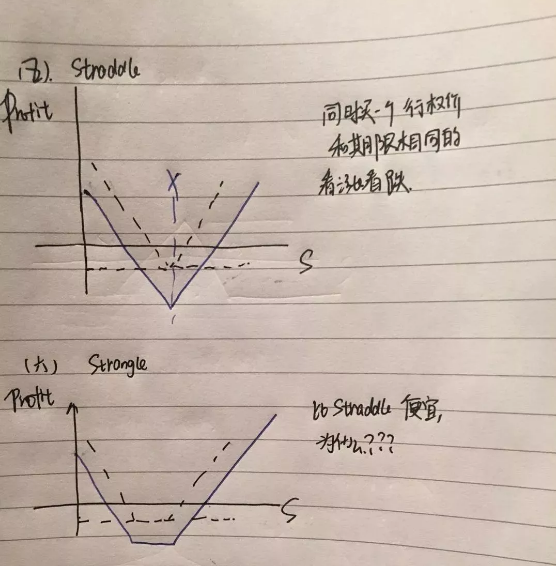 (五). Straddle
Profit
同时买一个行权价
和期限相同的
看涨看跌.
X
S
(六) Strangle
Profit
比 Straddle 便宜,
为什么???
S